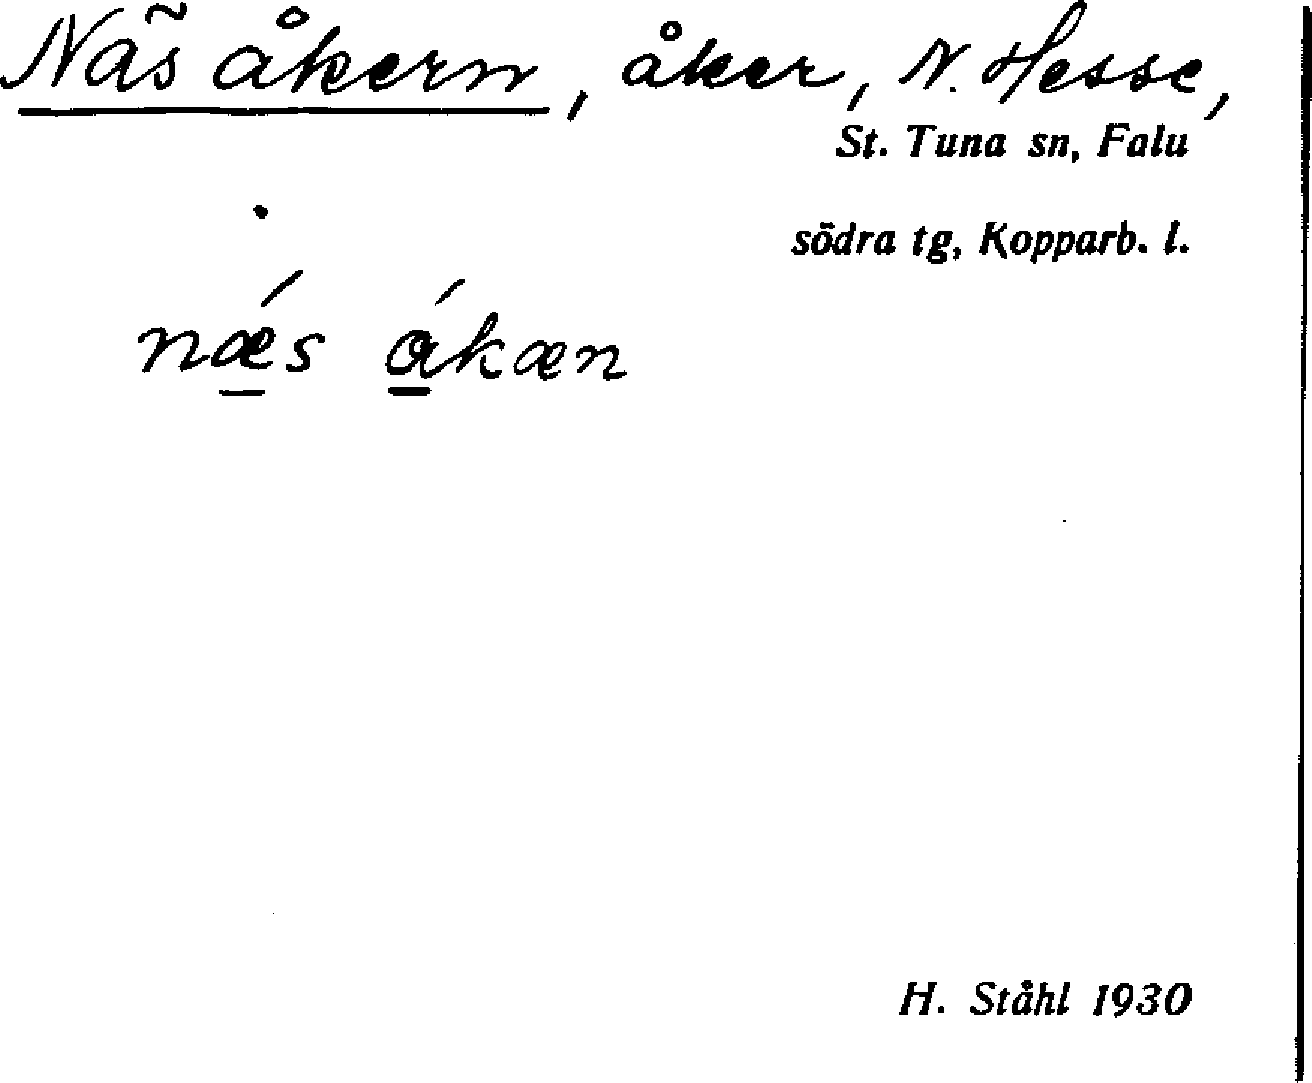 Näs åkern, åker, N. Hesse,
St. Tuna sn, Falu
södra tg, Kopparb. l.
nǽ̲s á̲kæn
H. Ståhl 1930